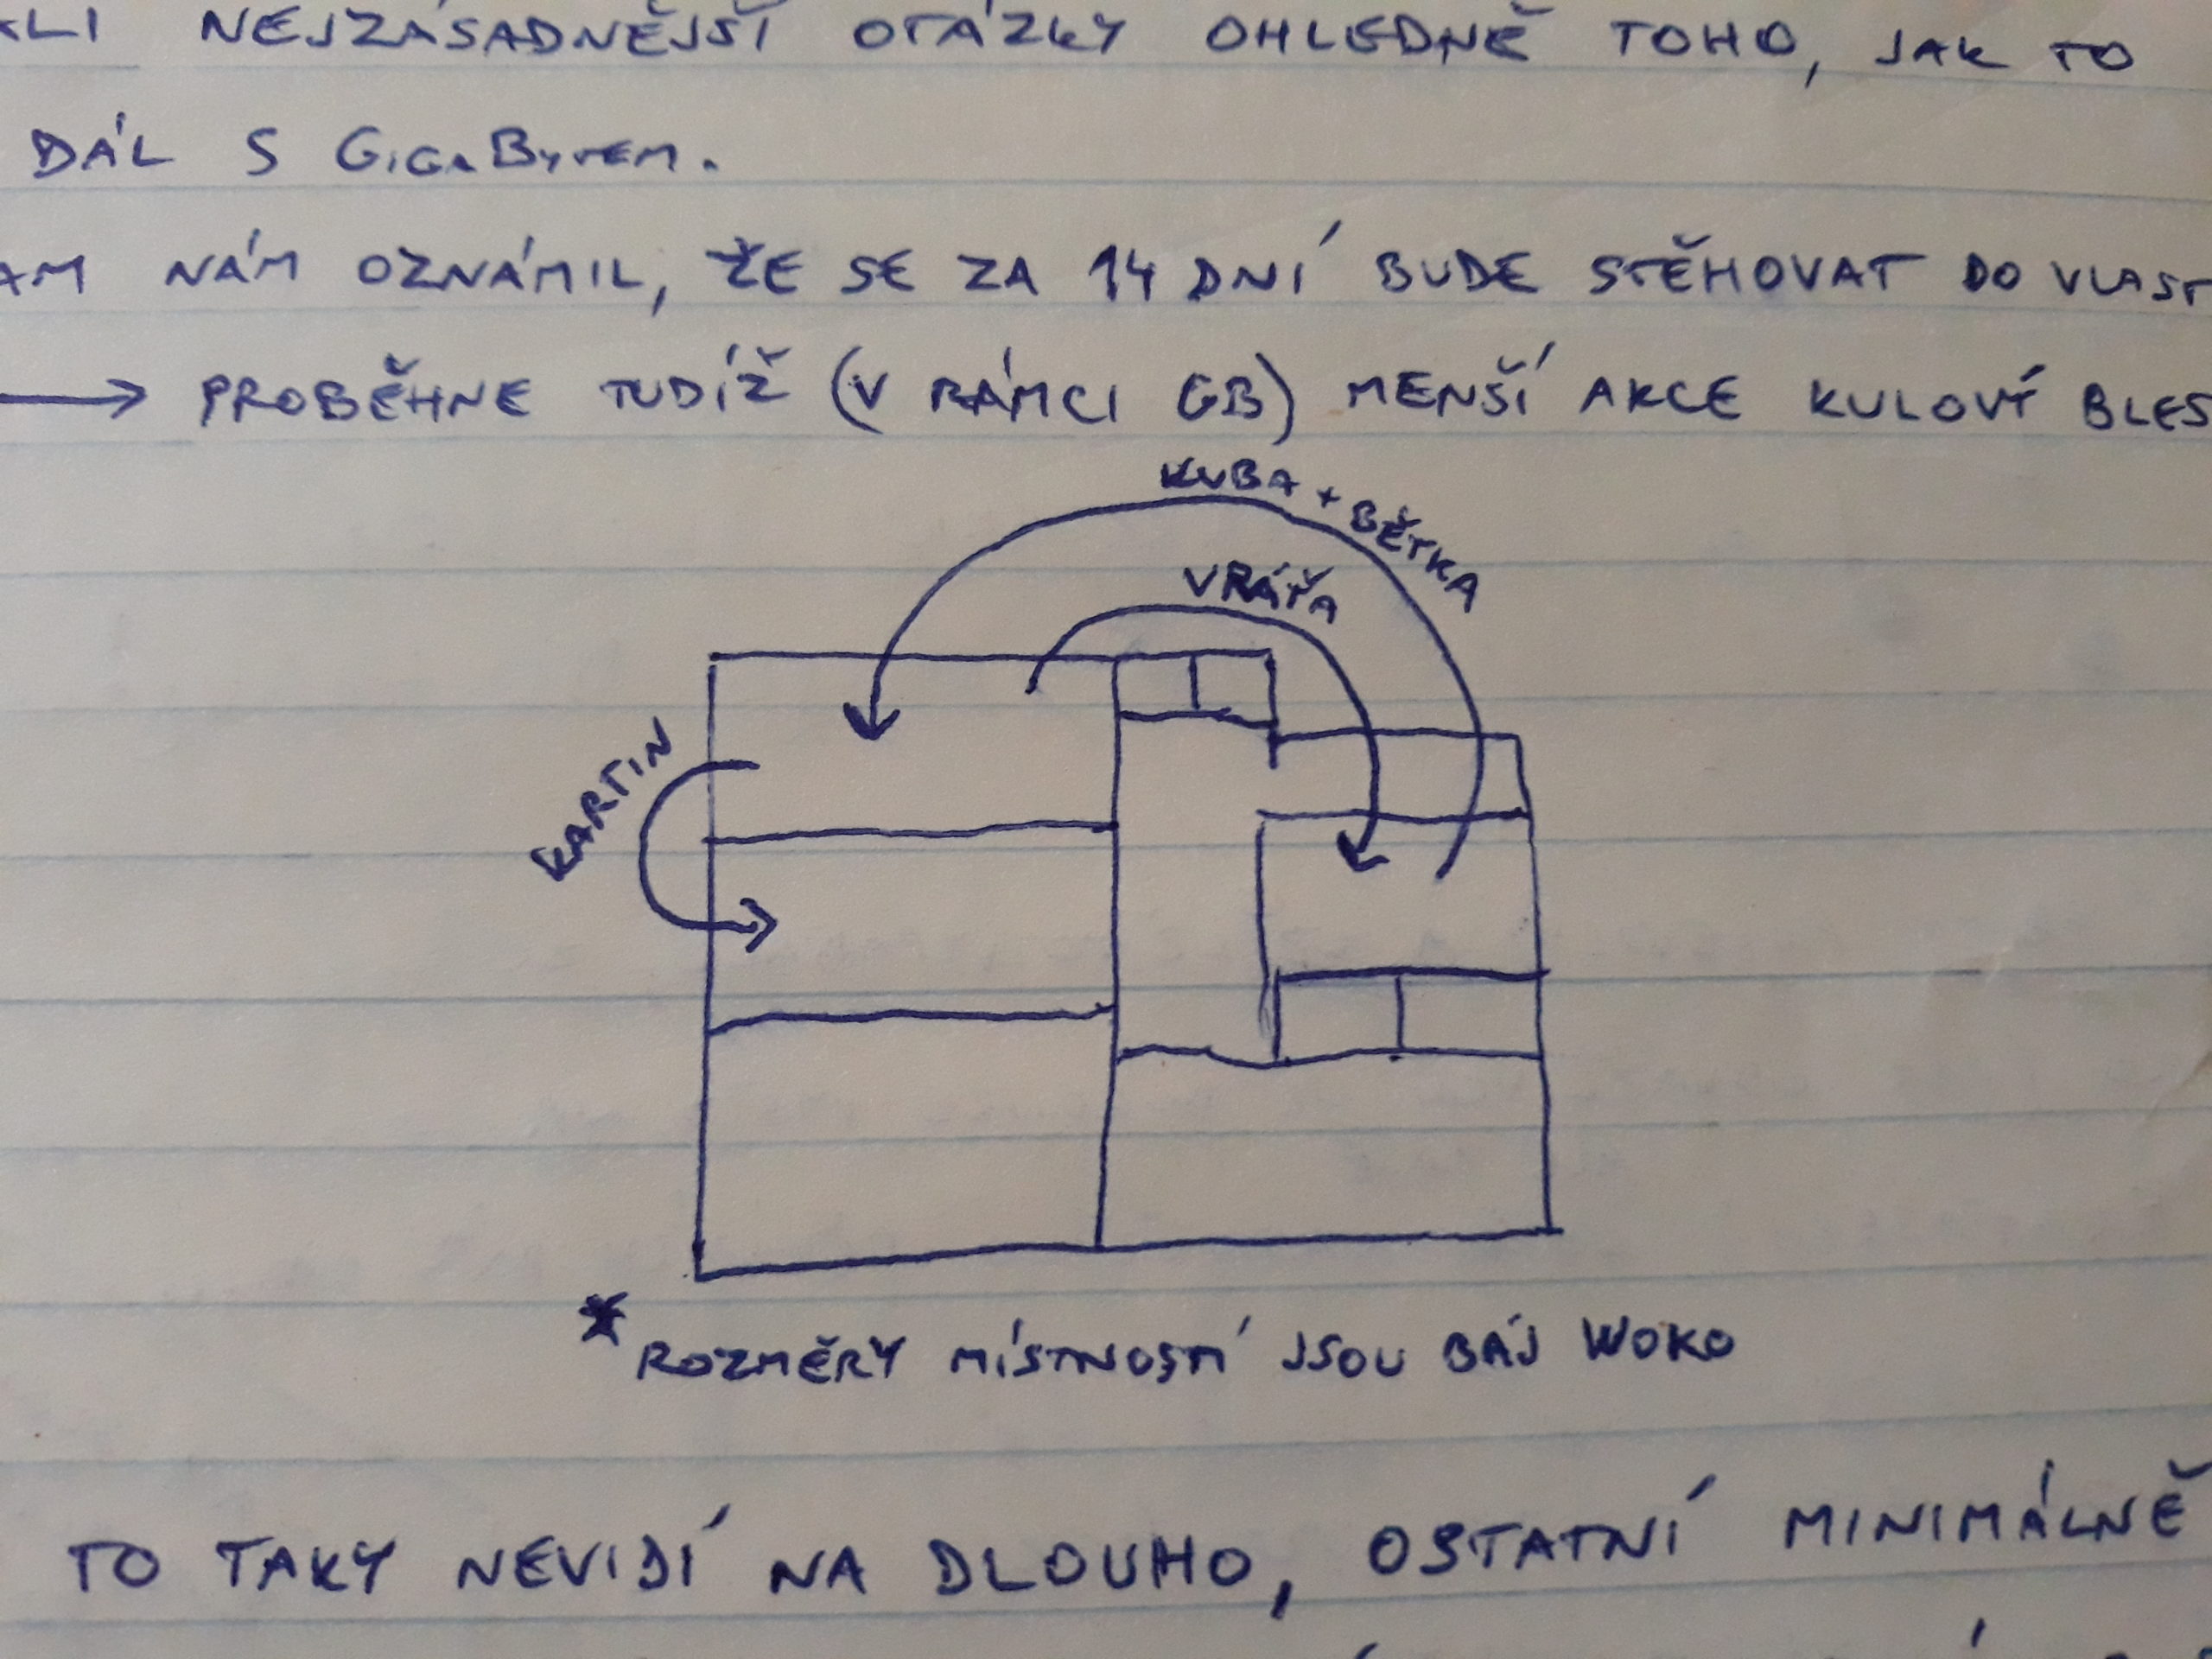 KLI NEJZÁSADNĚJŠÍ OTÁZKY OHLEDNĚ TOHO, JAK TO
DÁL S GIGABYTEM.
AM NÁM OZNÁMIL, ŽE SE ZA 14 DNÍ BUDE STĚHOVAT DO VLAST
→ PROBĚHNE TUDÍŽ (V RÁMCI GB) MENŠÍ AKCE KULOVÝ BLES
KUBA + BĚTKA
VRÁŤA
KARTIN
*ROZMĚRY MÍSTNOSTÍ JSOU BÁJ WOKO
TO TAKY NEVIDÍ NA DLOUHO, OSTATNÍ MINIMÁLNĚ